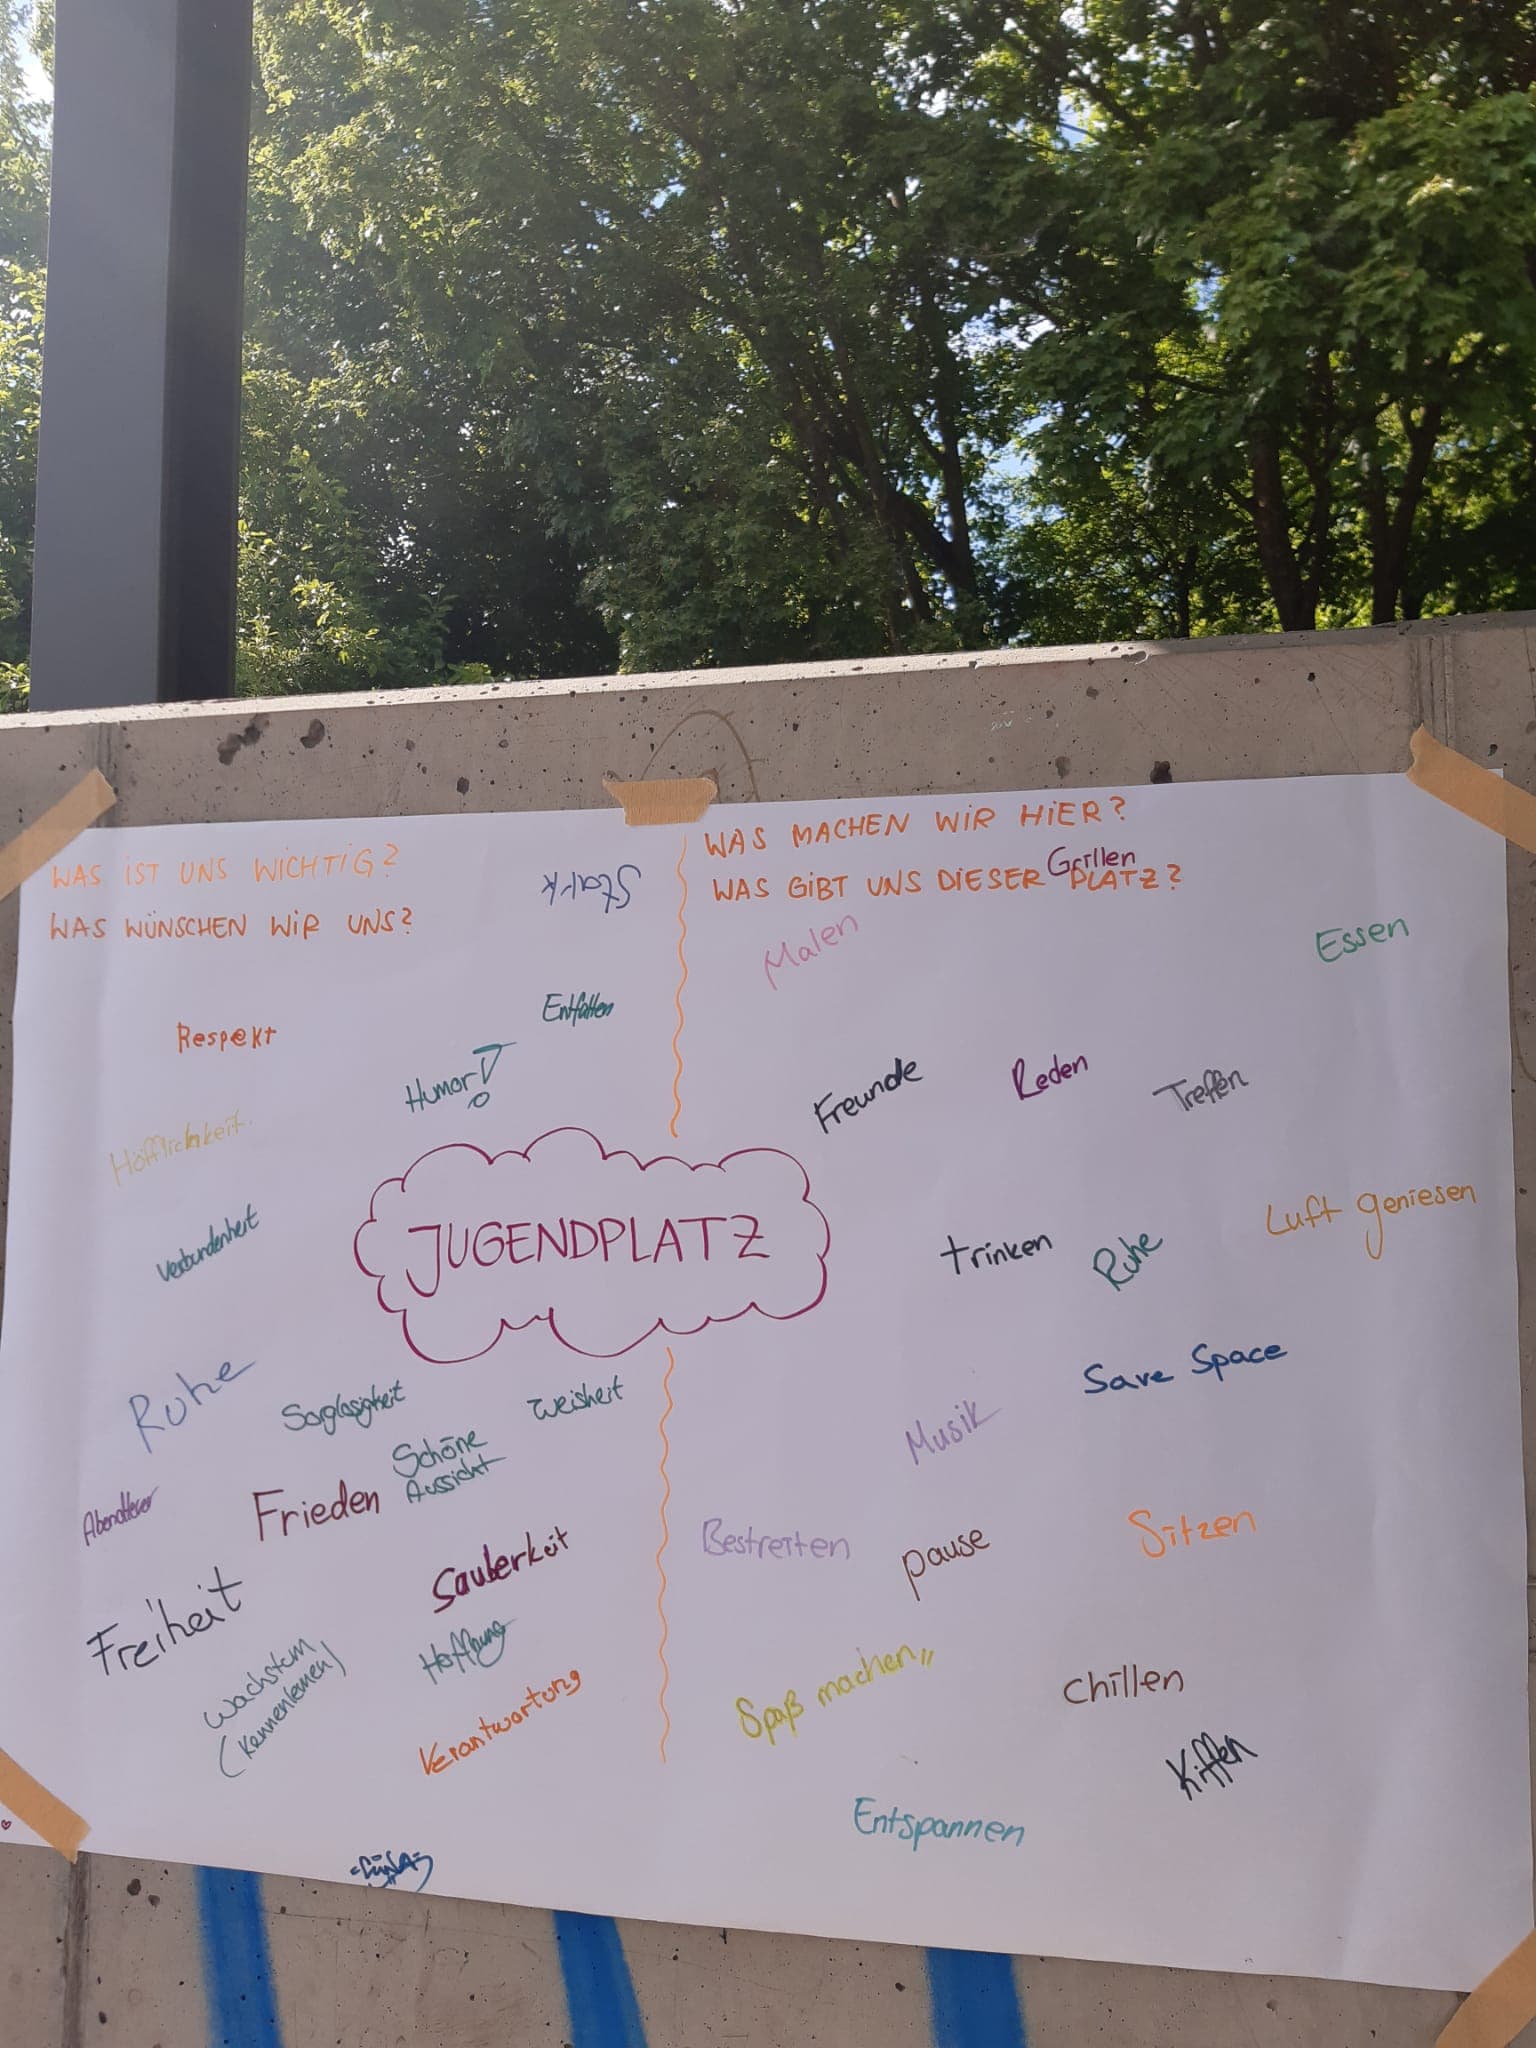 WAS IST UNS WICHTIG?
WAS WÜNSCHEN WIR UNS?
Stark
Entfalten
Respekt
Humor!
Höfflichkeit.
Verbundenheit
JUGENDPLATZ
Ruhe
Sorglosigkeit
Weisheit
Schöne
Aussicht
Frieden
Sauberkeit
Freiheit
Hoffnung
Wachstum
(Kennenlernen)
Verantwortung
WAS MACHEN WIR HIER?
Grillen
WAS GIBT UNS DIESER PLATZ?
Malen
Essen
Freunde
Reden
Treffen
Luft geniesen
trinken
Ruhe
Save Space
Musik
Bestreiten
pause
Sitzen
Spaß machen,,
Chillen
Kiffen
Entspannen